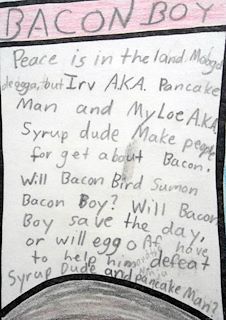 BACON BOY
Peace is in the land
but Irv A.K.A. Pancake
Man and MyLoe A.K.A.
Syrup dude Make people
for get about Bacon.
Will Bacon Bird Sumon
Bacon Boy? Will Bacon
Boy save the day,
or will egg o Af have
to help him defeat
Syrup Dude and pancake Man?